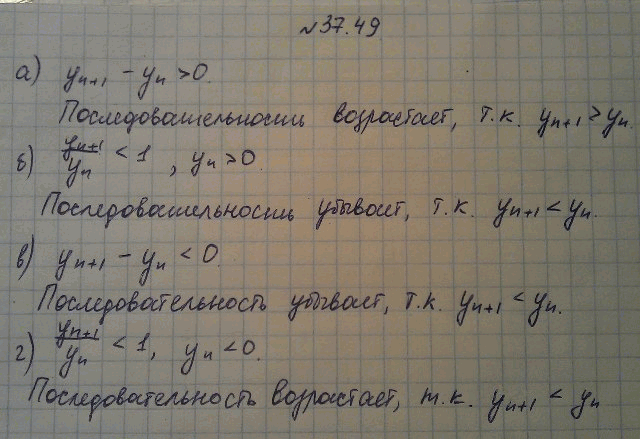 №37.49
а) yn+1 - yn > 0.
Последовательность возрастает, т.к. yn+1 > yn.
б) yn+1/yn < 1, yn > 0
Последовательность убывает, т.к. yn+1 < yn.
в) yn+1 - yn < 0.
Последовательность убывает, т.к. yn+1 < yn.
г) yn+1/yn < 1, yn < 0.
Последовательность возрастает, т.к. yn+1 < yn